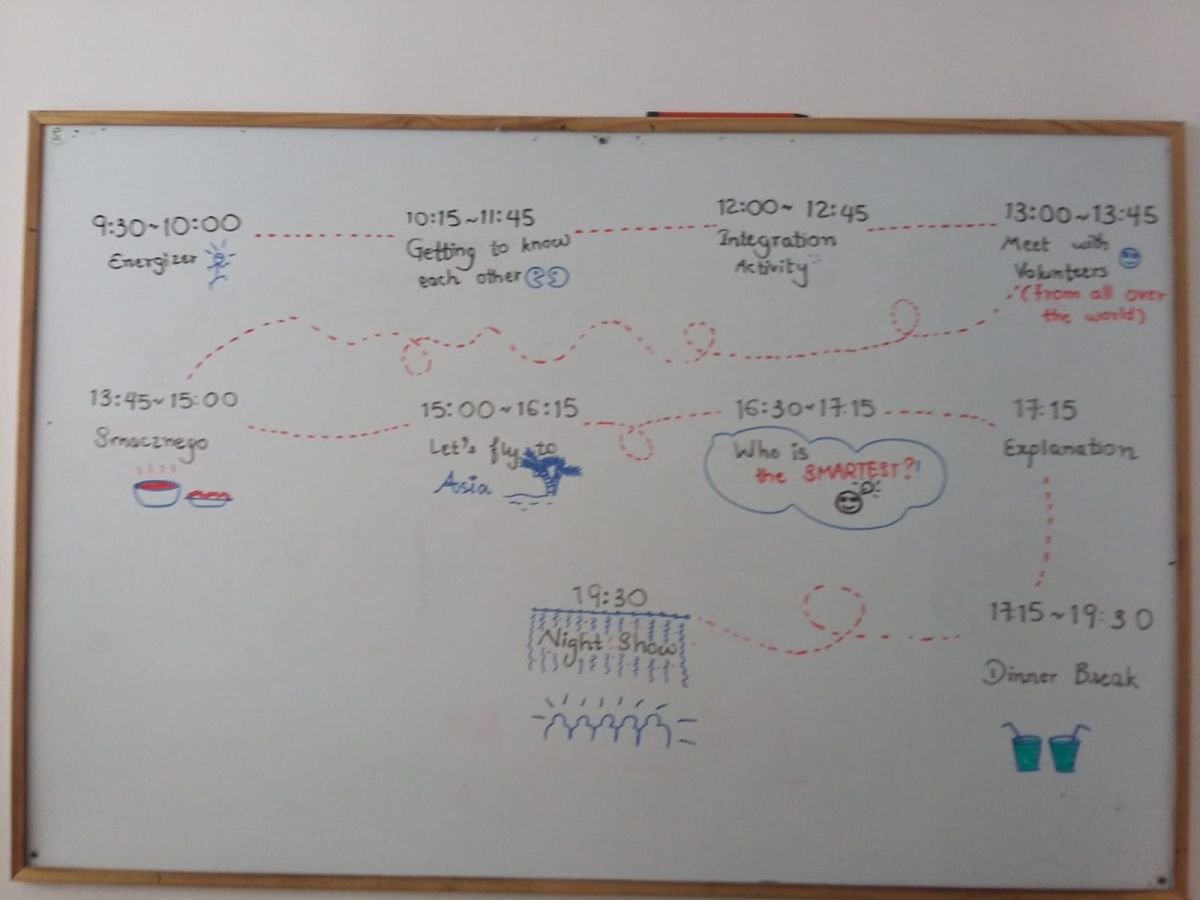 9:30~10:00
Energizer
10:15~11:45
Getting to know
each other
12:00~ 12:45
Integration
Activity
13:00~13:45
Meet with
Volunteers
(from all over
the world)
13:45~15:00
Smacznego
15:00~16:15
Let's fly to
Asia
16:30~17:15
Who is
the SMARTEST?!
17:15
Explanation
17:15~19:30
Dinner Break
19:30
Night Show